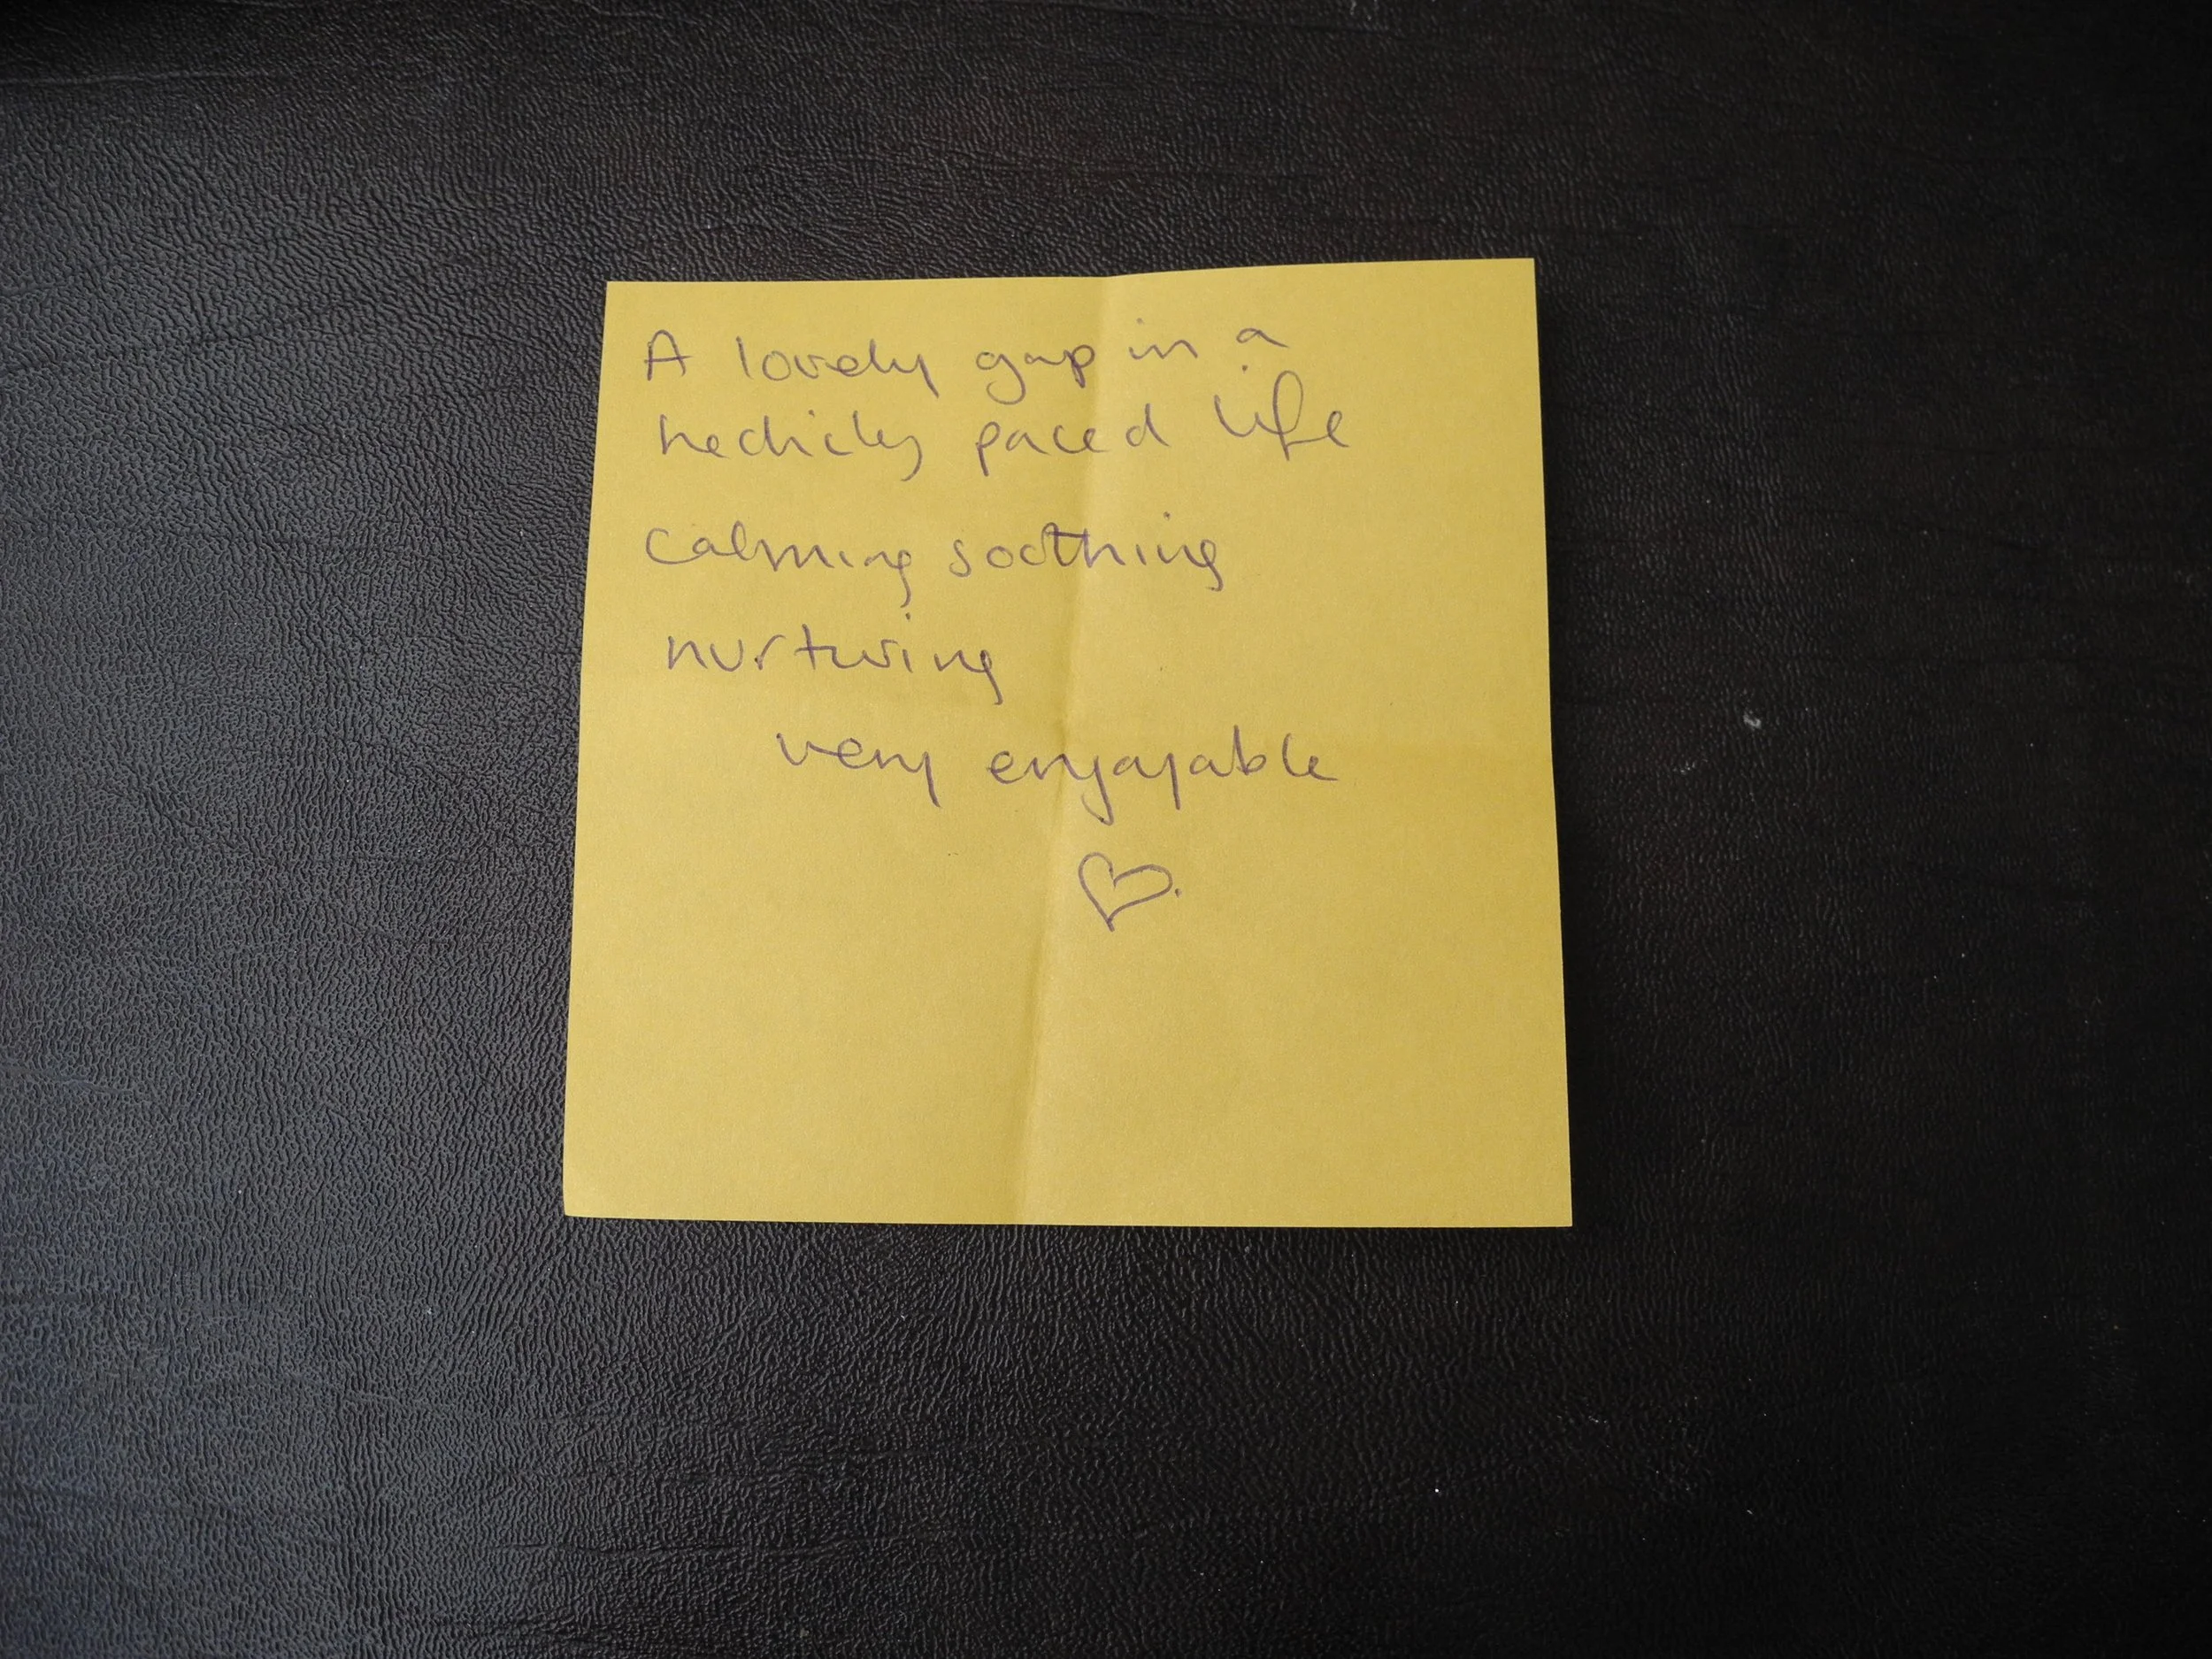 A lovely gap in a
hecticly paced life
calming soothing
nurturing
very enjoyable